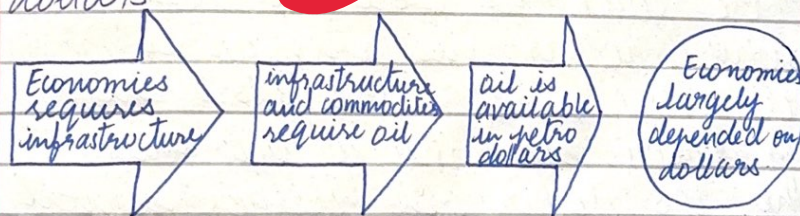 Economies
requires
infrastructure
infrastructure
and commodites
require oil
oil is
available
in petro
dollars
Economies
largely
depended on
dollars